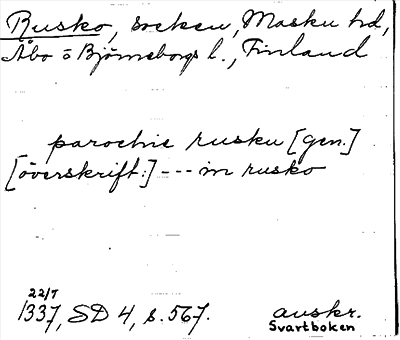 Rusko, socken, Masku hd,
Åbo o Björneborgs l., Finland
parochie rusku [gen.]
[överskrift:] --- in rusko
22/7
1337, SD 4, s. 567. avskr.
Svartboken